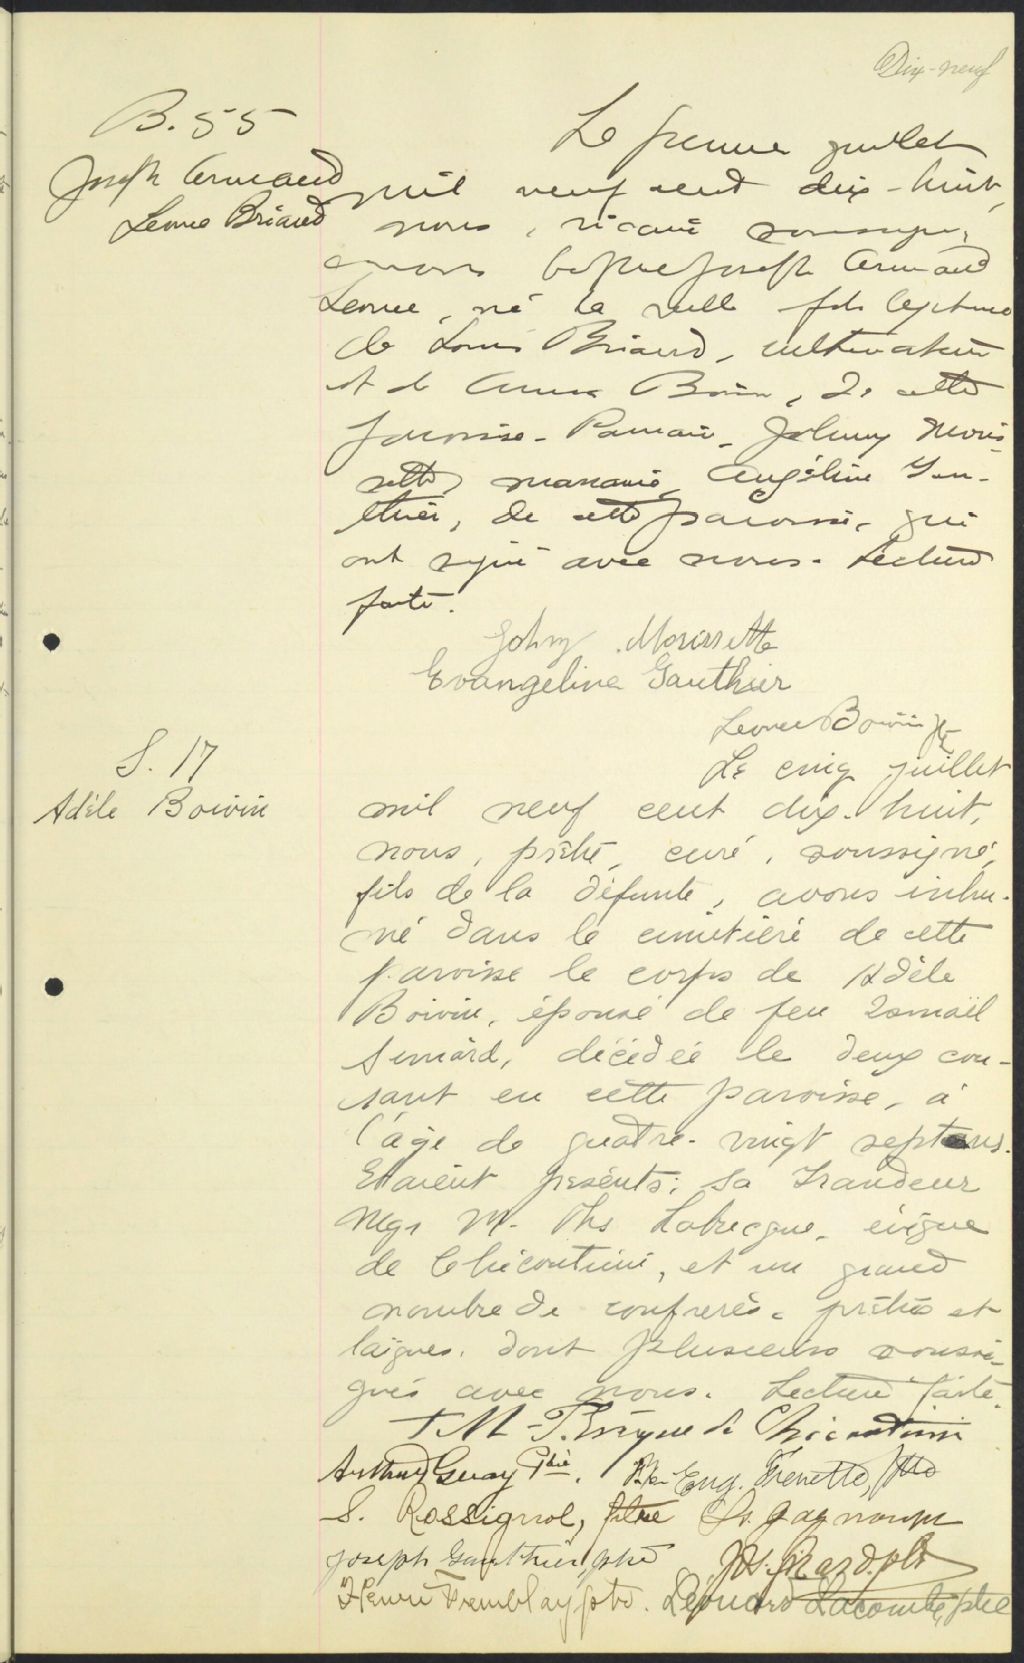 Dix-neuf
B. 55
Joseph Armand
Leonce Briand
Le premier juillet
mil neuf cent dix-huit,
nous, vicaire soussigné,
avons baptisé Joseph Armand
Leonce, né la veille fils légitime
de Louis Briand, cultivateur
et de Anna Boivin, de cette
paroisse. Parrain, Johnny Moris-
sette, marraine, Angéline Gau-
thier, de cette paroisse, qui
ont signé avec nous. Lecture
faite.
Johny Morissette
Evangeline Gauthier
Leonce Boivin ptr
S. 17
Adèle Boivin
Le cinq juillet
mil neuf cent dix-huit,
nous, prêtre, curé, soussigné,
fils de la défunte, avons inhu-
mé dans le cimetière de cette
paroisse le corps de Adèle
Boivin, épouse de feu Ismaël
Simard, décédée le deux cou-
rant en cette paroisse, à
l'âge de quatre-vingt sept ans.
Etaient présents: Sa Grandeur
Mgr M. Ths Labrecque, évêque
de Chicoutimi, et un grand
nombre de confrères, prêtres et
laïques, dont plusieurs soussi-
gnés avec nous. Lecture faite.
+ M-T. Evêque de Chicoutimi
Arthur Guay Ptre. Eug. Frenette, ptre
S. Rossignol, ptre Gagnon ptr
Joseph Gauthier, ptre Jos. Girard. ptre
Henri Tremblay ptre. Léonard Lacombe, ptre